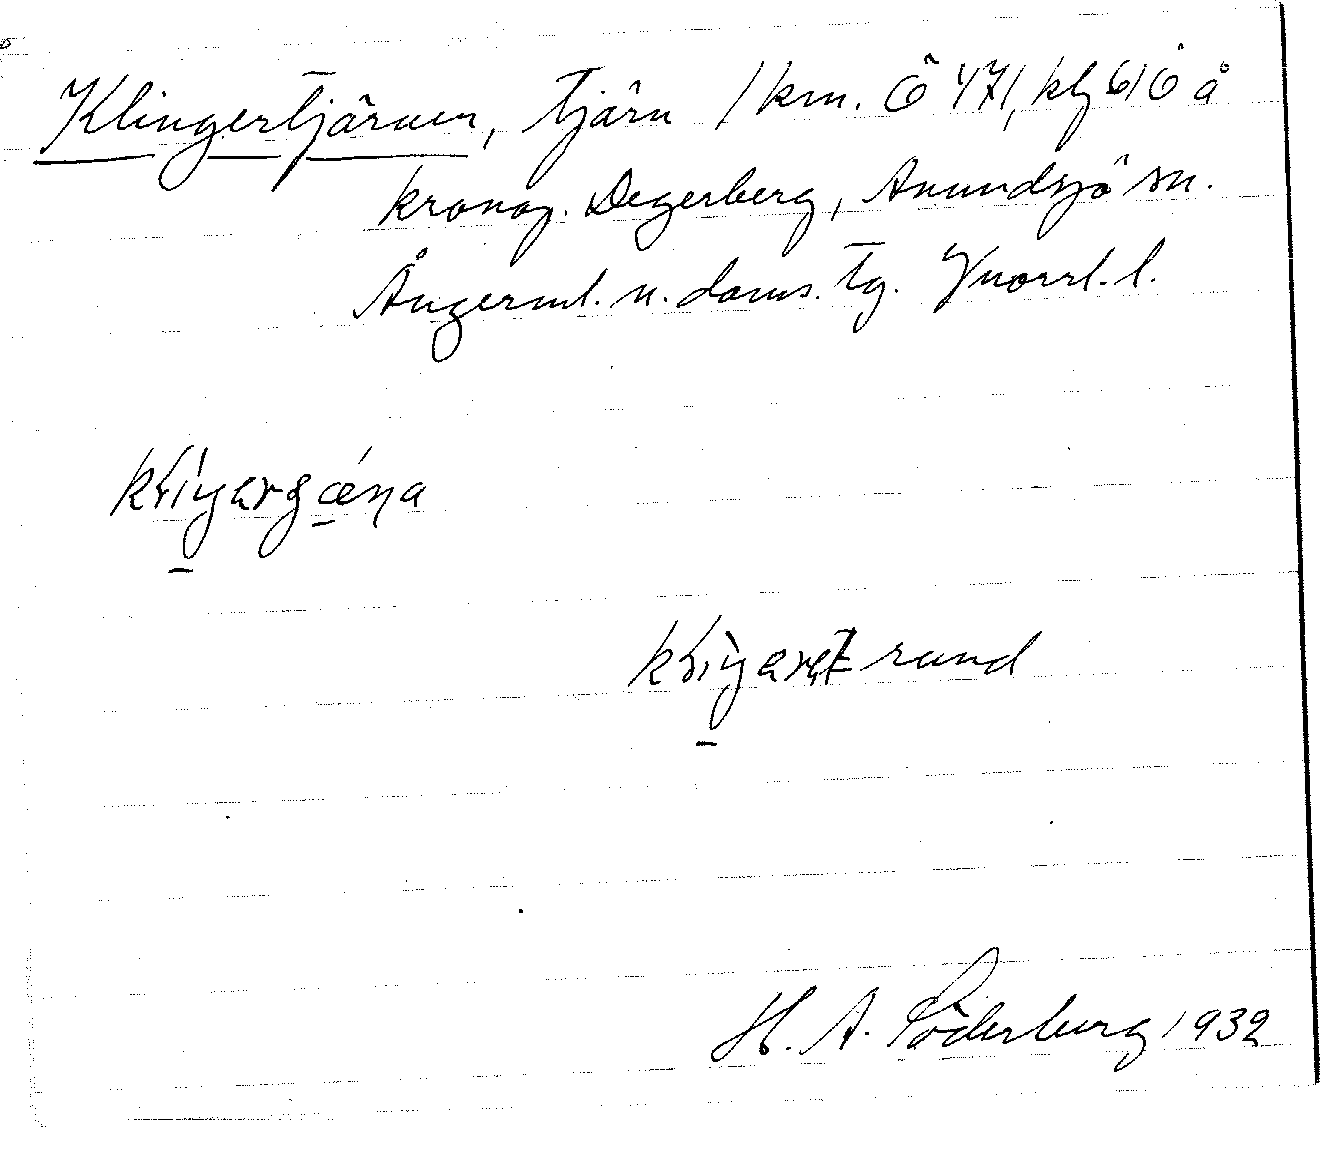 Klingertjärnen, tjärn 1 km. Ö 471, kl 616 å
kronog. Degerberg, Anundsjö sn.
Ångerml. n. doms. tg. Vnorrl. l.
rund
H. A. Söderberg 1932